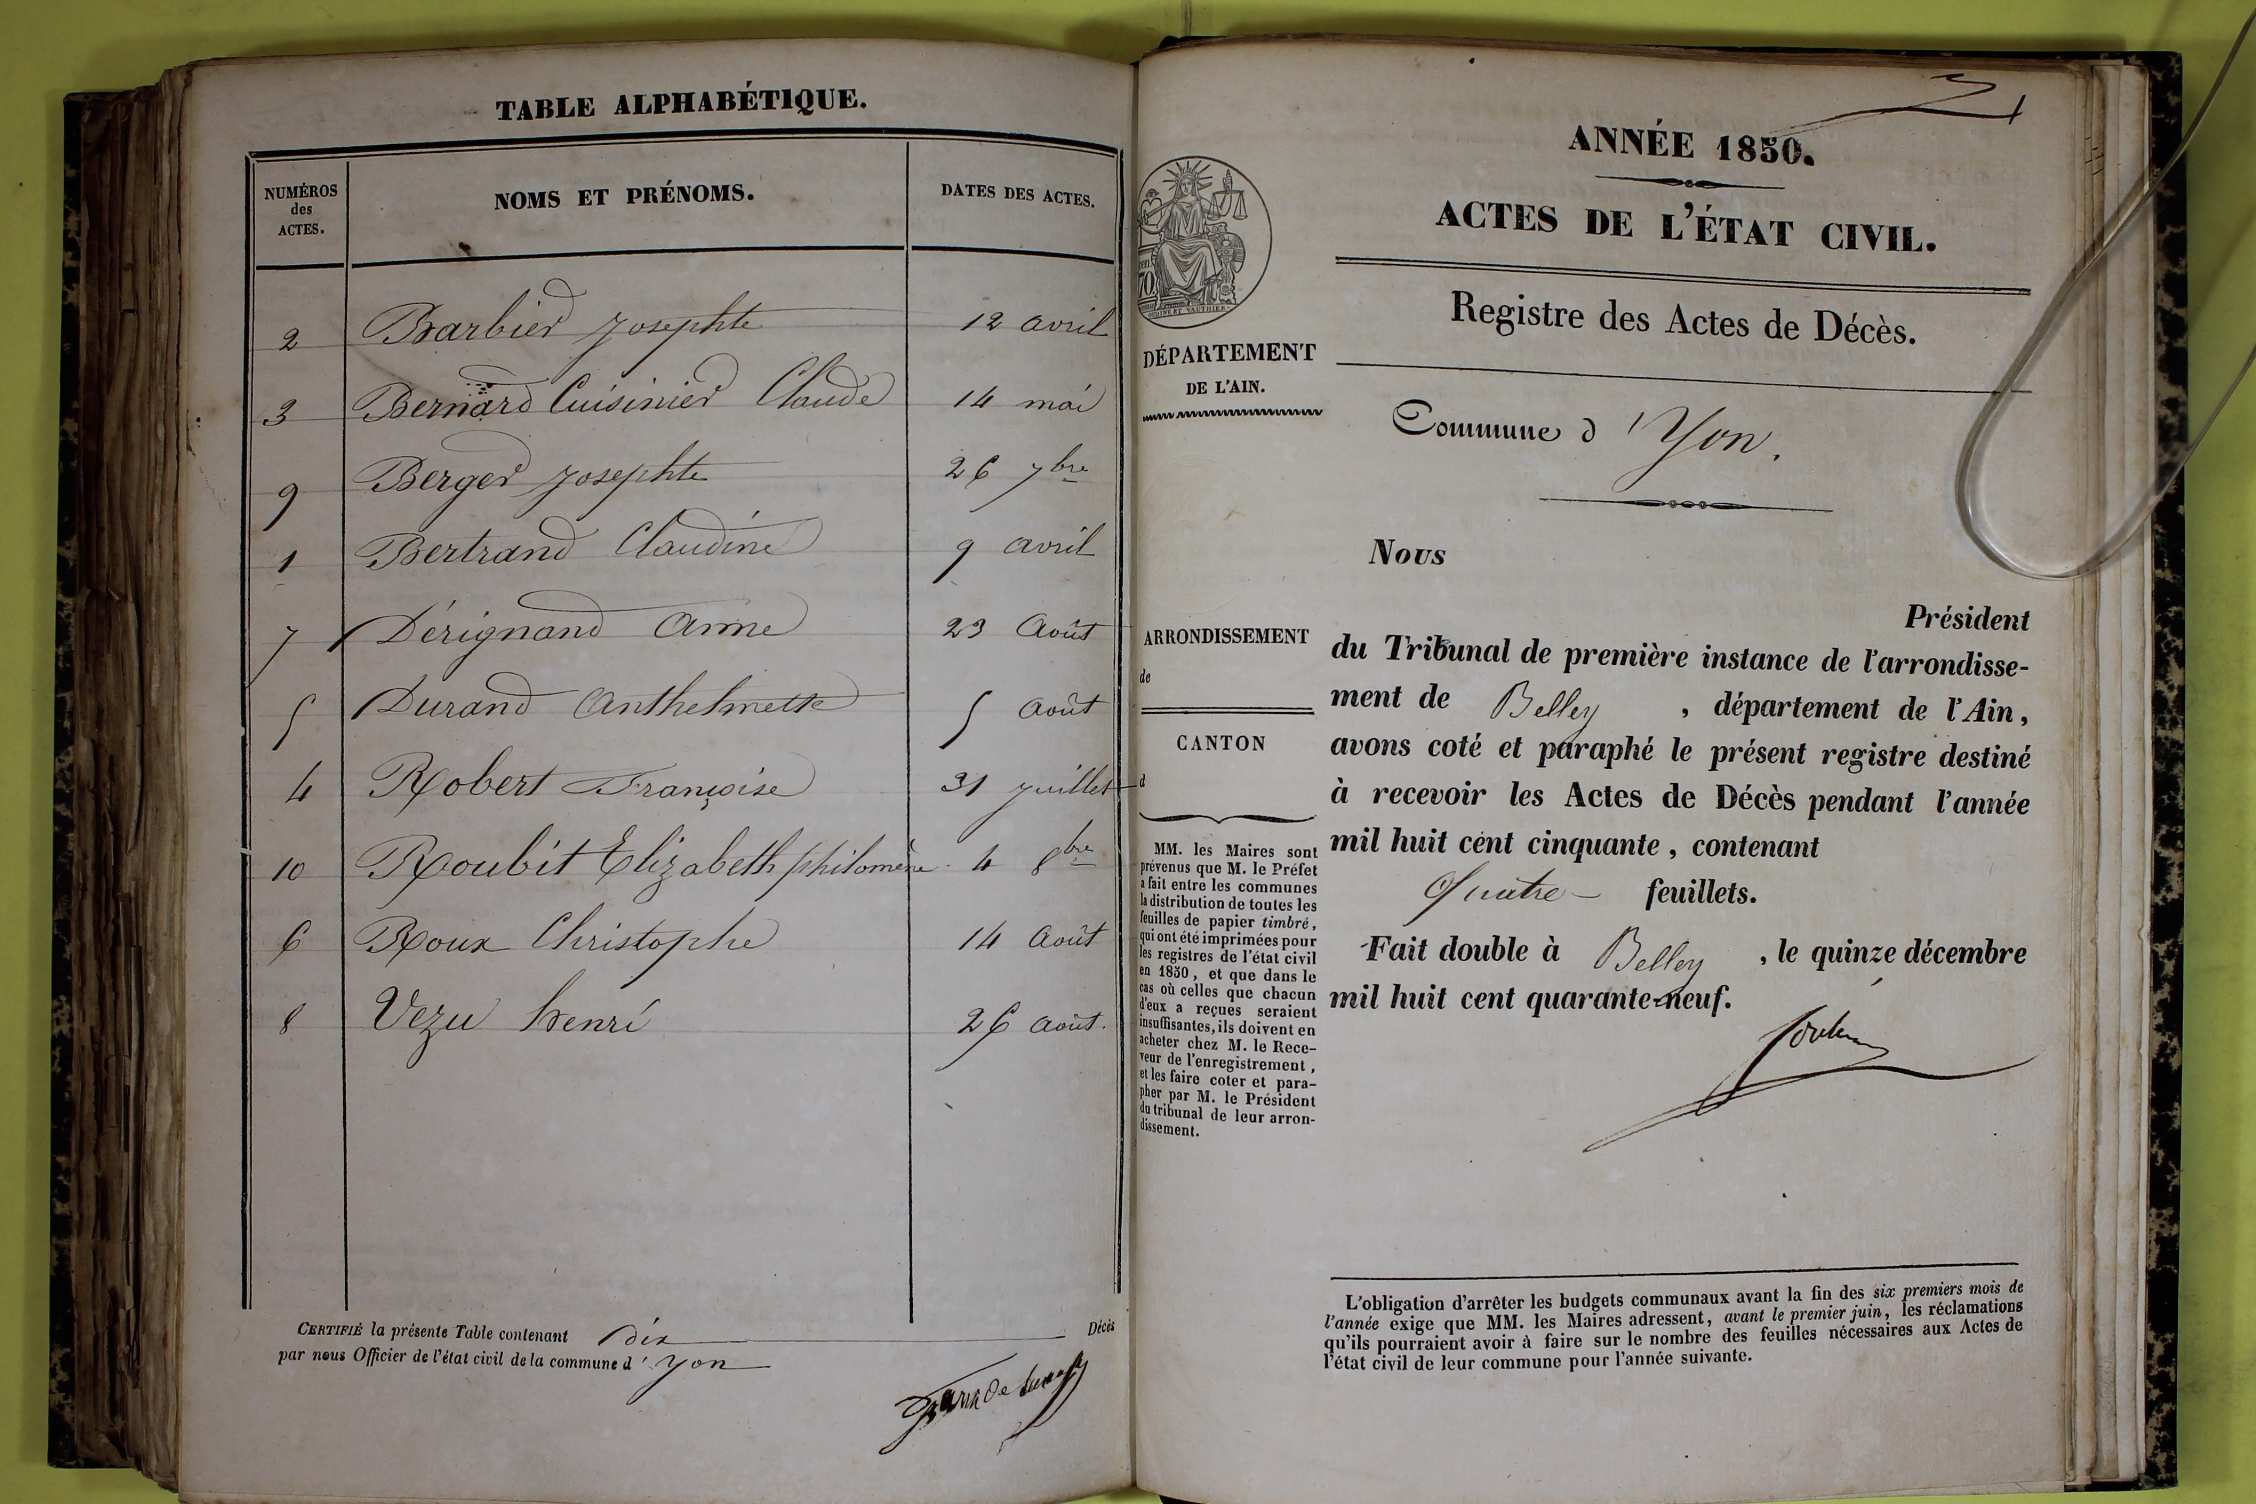 TABLE ALPHABÉTIQUE.
NUMÉROS des ACTES. NOMS ET PRÉNOMS. DATES DES ACTES.
2 Barbier Josephte 12 avril
3 Bernard Cuisinier Claude 14 mai
9 Berger Josephte 26 7bre
1 Bertrand Claudine 9 avril
7 Dérignand Anne 23 Août
5 Durand Anthelmette 5 Août
4 Robert Françoise 31 Juillet
10 Roubit Elizabeth philomène 4 8bre
6 Roux Christophe 14 Août
8 Vezu henri 26 août.
CERTIFIÉ la présente Table contenant dix Décès
par nous Officier de l'état civil de la commune d'yon
1
ANNÉE 1850.
ACTES DE L'ÉTAT CIVIL.
Registre des Actes de Décès.
DÉPARTEMENT
DE L'AIN.
Commune d'Yon.
Nous
Président
du Tribunal de première instance de l'arrondisse-
ment de Belley, département de l'Ain,
avons coté et paraphé le présent registre destiné
à recevoir les Actes de Décès pendant l'année
mil huit cent cinquante, contenant
Quatre feuillets.
Fait double à Belley, le quinze décembre
mil huit cent quarante-neuf.
ARRONDISSEMENT
de
CANTON
d
MM. les Maires sont
prévenus que M. le Préfet
a fait entre les communes
la distribution de toutes les
feuilles de papier timbré,
qui ont été imprimées pour
les registres de l'état civil
en 1850, et que dans le
cas où celles que chacun
d'eux a reçues seraient
insuffisantes, ils doivent en
acheter chez M. le Rece-
veur de l'enregistrement,
et les faire coter et para-
pher par M. le Président
du tribunal de leur arron-
dissement.
L'obligation d'arrêter les budgets communaux avant la fin des six premiers mois de
l'année exige que MM. les Maires adressent, avant le premier juin, les réclamations
qu'ils pourraient avoir à faire sur le nombre des feuilles nécessaires aux Actes de
l'état civil de leur commune pour l'année suivante.